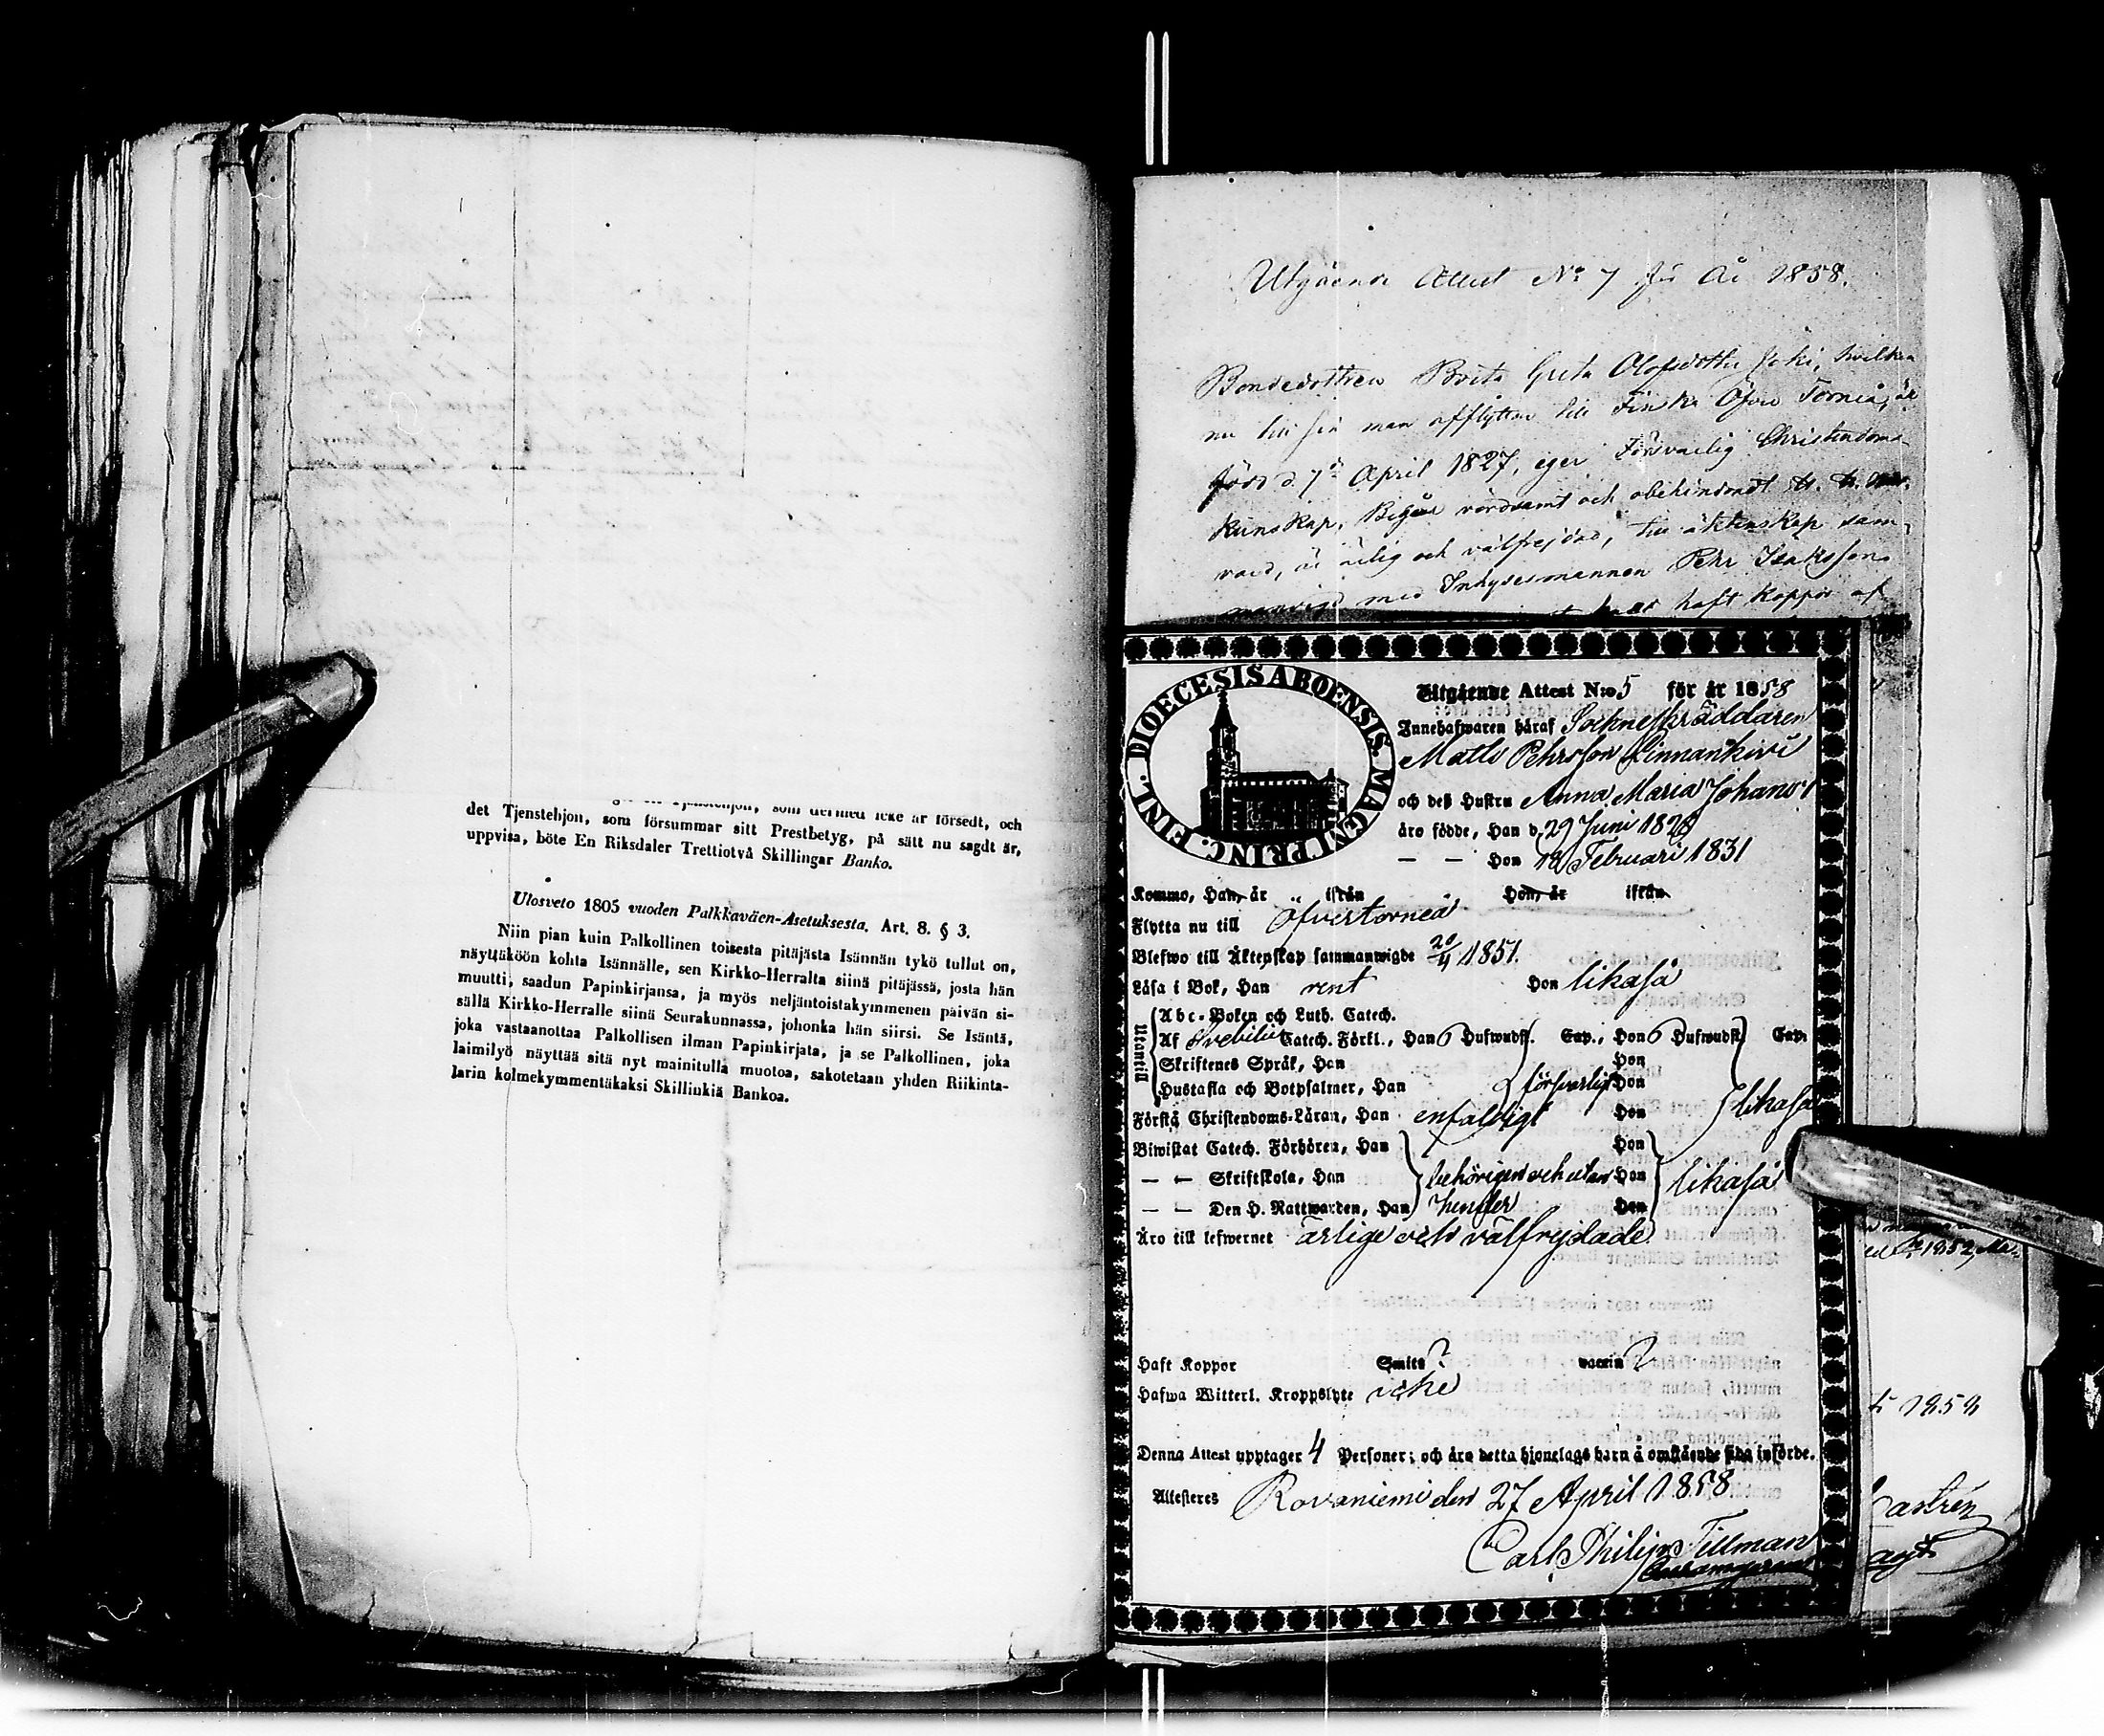 det Tjenstehjon, som försummar sitt Prestbetyg, på sätt nu sagdt är,
uppvisa, böte En Riksdaler Trettiotvå Skillingar Banko.
Ulosveto 1805 vuoden Palkkaväen-Asetuksesta. Art. 8. § 3.
Niin pian kuin Palkollinen toisesta pitäjästä Isännän tykö tullut on,
näyttäköön kohta Isännälle, sen Kirkko-Herralta siinä pitäjässä, josta hän
muutti, saadun Papinkirjansa, ja myös neljäntoistakymmenen päivän si-
sällä Kirkko-Herralle siinä Seurakunnassa, johonka hän siirsi. Se Isäntä,
joka vastaanottaa Palkollisen ilman Papinkirjata, ja se Palkollinen, joka
laimilyö näyttää sitä nyt mainitulla muotoa, sakotetaan yhden Riikinta-
larin kolmekymmentäkaksi Skillinkiä Bankoa.
Utgående Attest No 7 för År 1858.
Bondedottren Brita Greta Olofsdotter Joki, hvilken
nu till sin man afflyttar till Finska Öfver Torneå, är
född d. 7de April 1827, eger Försvarlig Christendoms-
kunskap, Begår vördsamt och obehindradt H. H. Natt-
vard, är ärlig och välfrejdad, till äktenskap sam-
manvigd med Inhysesmannen Pehr Isaksson
haft Koppor af
DIOECESIS ABOENSIS. MAGNI PRINC. FINL.
Utgående Attest N:o 5 för år 1858
Innehafwaren häraf Socknesskräddaren
Matts Pehrsson Linnankivi
och deß Hustru Anna Maria Johansd
äro födde, Han d. 29 Juni 1828
— — Hon 18 Februari 1831
Kommo, Han, år ifrån Hon, år ifrån
Flytta nu till Öfvertorneå
Blefwo till Äktenskap sammanwigde 20/4 1851.
Läsa i Bok, Han rent Hon likaså
Utantill
Abc-Boken och Luth. Catech.
Af Svebilii Catech. Förkl., Han 6 Hufwudst. Cap., Hon 6 Hufwudst. Cap.
Skriftenes Språk, Han Hon
Hustafla och Botpsalmer, Han försvarligt Hon
Förstå Christendoms-Läran, Han enfaldigt Hon likaså
Biwistat Catech. Förhören, Han Hon
— — Skriftskola, Han behörigen och utan Hon likaså
— — Den H. Nattwarden, Han hinder Hon
Äro till lefwernet ärlige och välfrejdade
Haft Koppor Smitt ? vaccin ?
Hafwa Witterl. Kroppslyte icke
Denna Attest upptager 4 Personer; och äro detta hjonelags barn å omstående sida införde.
Attesteres Rovaniemi den 27 April 1858
Carl Philip Tillman
1852, Ma-
1858
Castrén